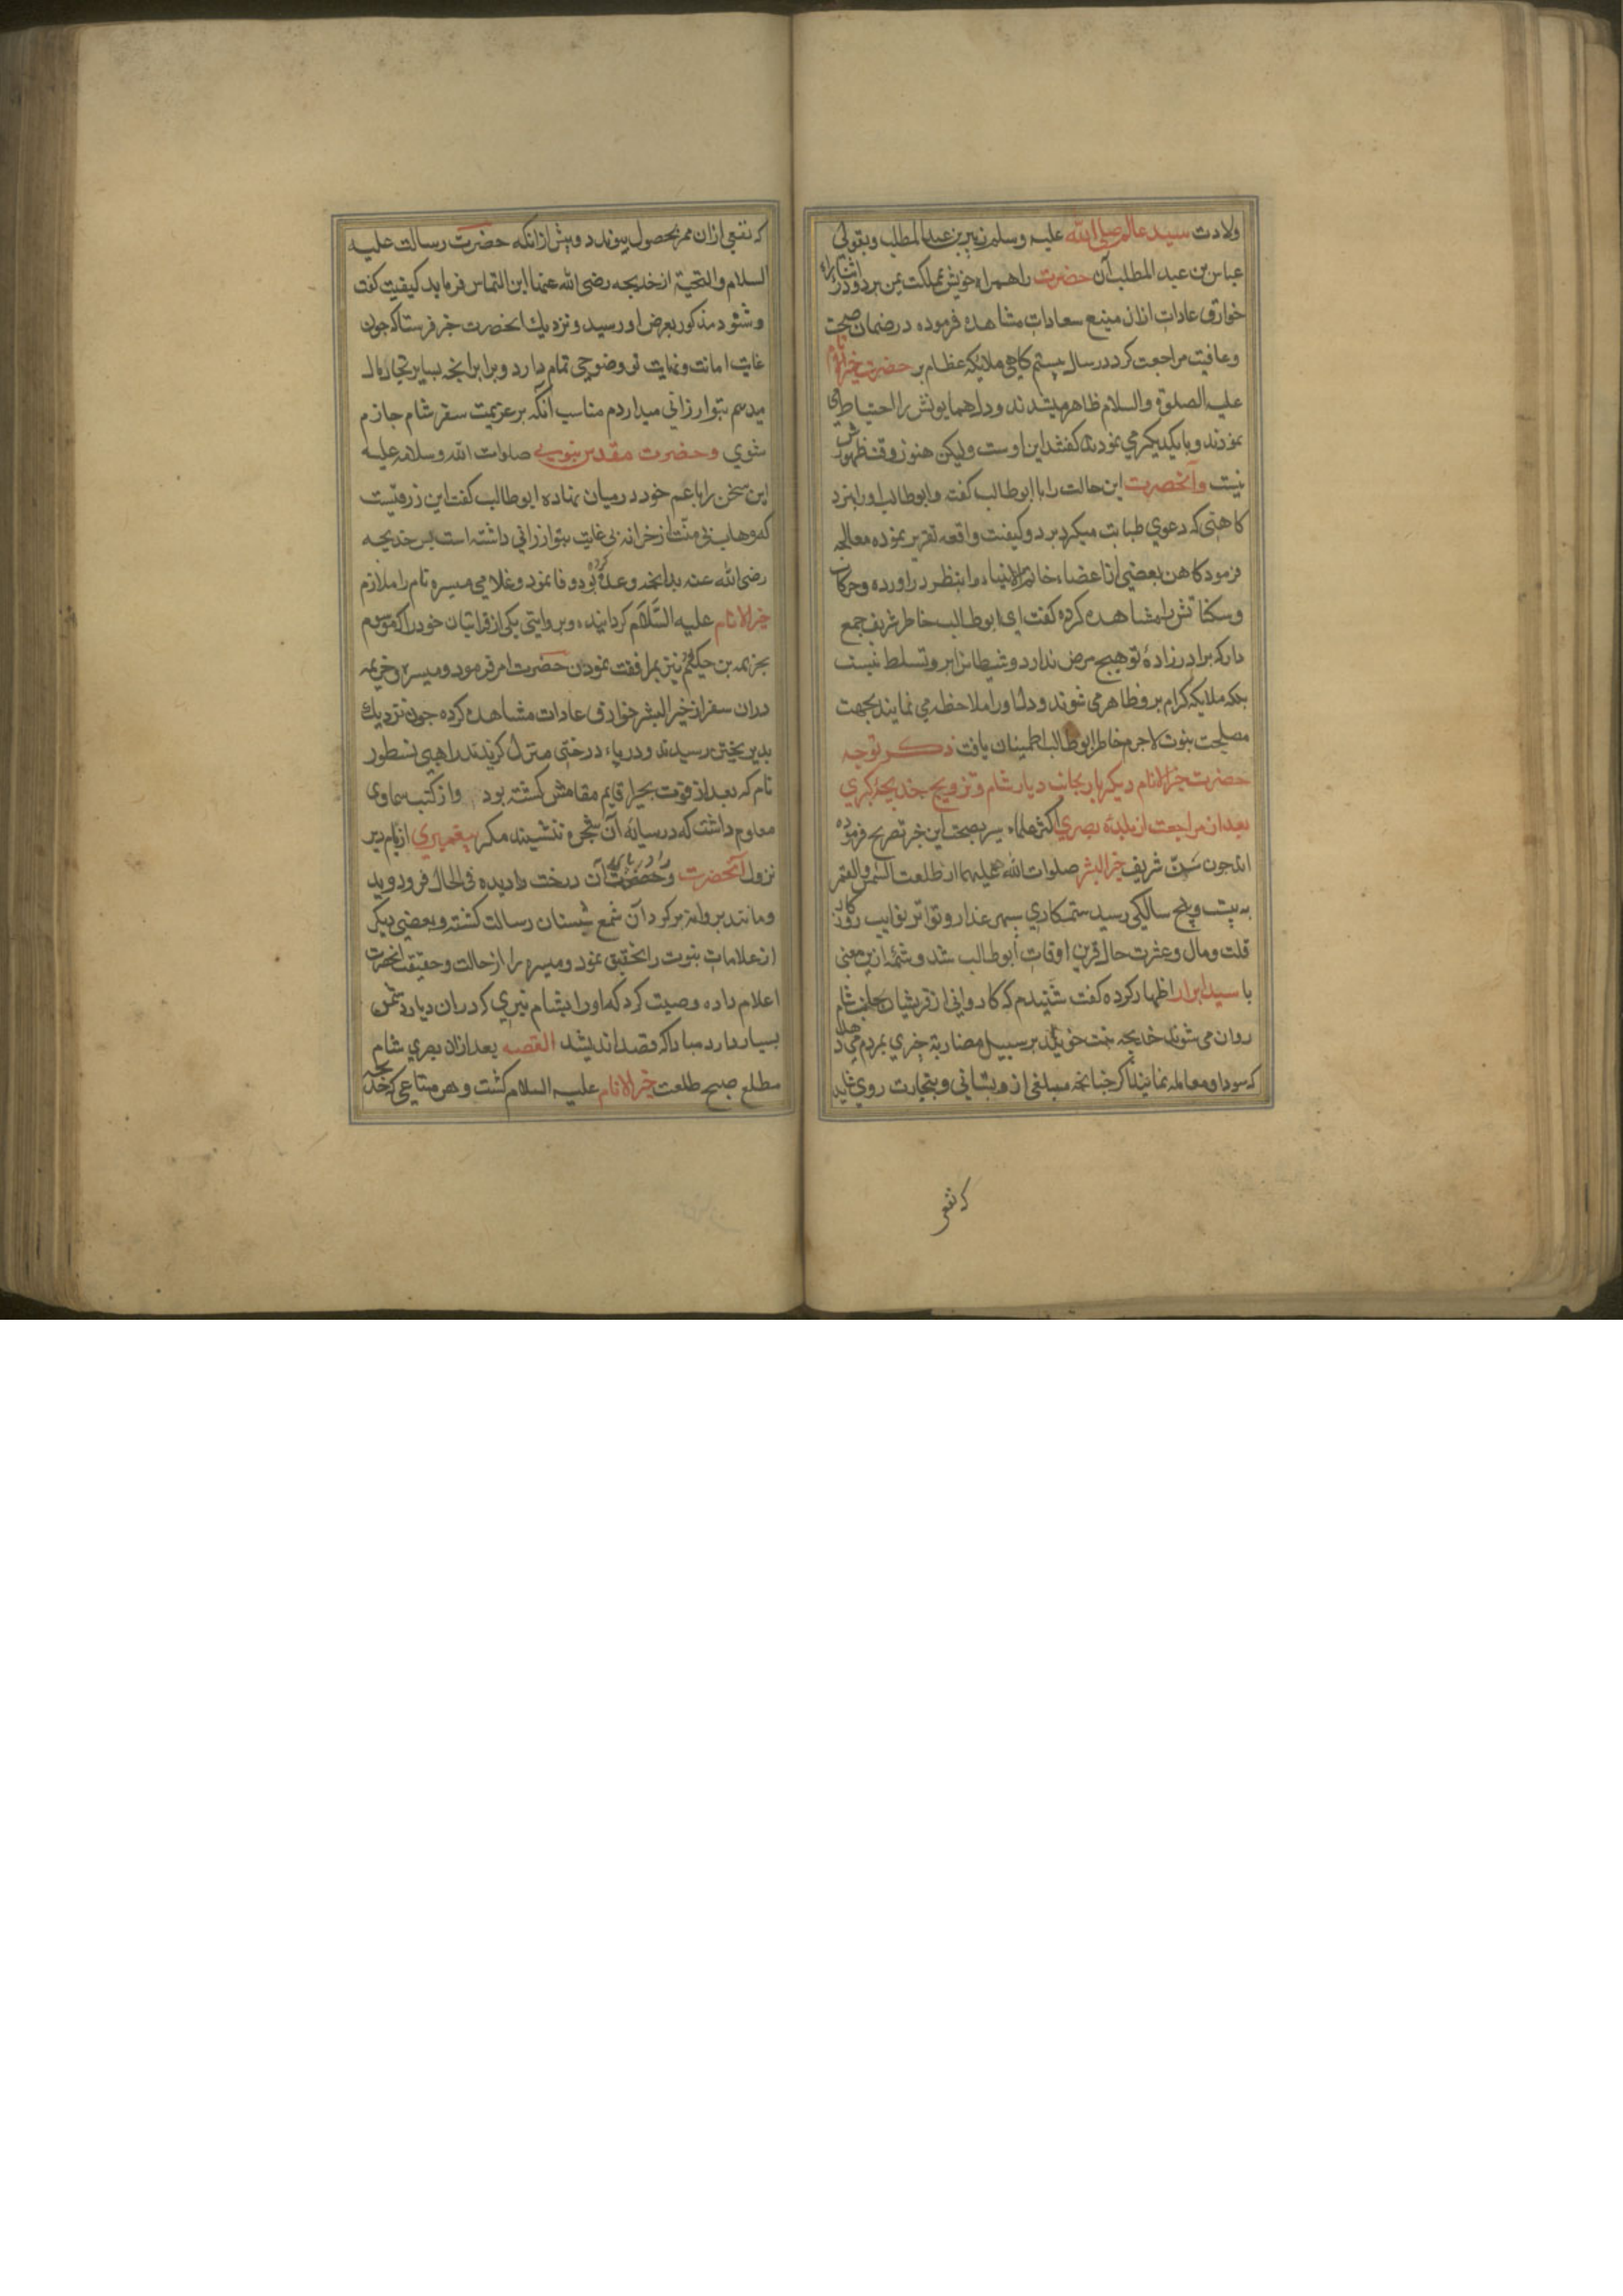 ولادت سید عالم صلی الله علیه وسلم زبیر بن عبد المطلب وبقولی
عباس بن عبد المطلب آن حضرت را همراه خویش بمملکت یمن برد ودر اثنا راه
خوارق عادات ازان منبع سعادات مشاهده فرموده در ضمان صحت
وعافیت مراجعت کرد در سال بیستم کاهی ملائکه عظام بر حضرت خیر الانام
علیه الصلوة والسلام ظاهر میشدند ودل همایونش را احتیاط
نمودند وبا یکدیکر می نمودند که این اوست ولیکن هنوز وقت ظهورش
نیست وآنحضرت این حالت را با ابو طالب کفت وابو طالب او را بنزد
کاهنی که دعوی طبابت میکرد برد وکیفیت واقعه تقریر نموده معالجه
فرمود کاهن بعضی از اعضاء خاتم الانبیاء را بنظر در اورده وحرکات
وسکناتش را مشاهده کرده کفت ای ابو طالب خاطر شریف جمع
دار که برادر زادهٔ تو هیچ مرض ندارد وشیطانرا برو تسلط نیست
بلکه ملایکه کرام برو ظاهر می شوند ودل او را ملاحظه می نمایند بجهت
مصلحت نبوت لاجرم خاطر ابو طالب اطمینان یافت ذکر توجه
حضرت خیر الانام دیکر بار بجانب دیار شام وتزویج خدیجه کبری
بعد از مراجعت از بلده بصری اکثر علماء سیر بصحت این خبر تصریح فرموده
اند جون سن شریف خیر البشر صلوات الله علیه ما طلعت الشمس والقمر
به بیست وپنج سالکی رسید ستمکاری سپهر غدار وتواتر نوایب روزکار
قلت ومال وعشرت حال قرین اوقات ابو طالب شد وشمهٔ ازین معنی
با سید ابرار اظهار کرده کفت شنیدم که کاروانی از قریشیان بجانب شام
روان می شوند خدیجه بنت خویلد بر سبیل مضاربة جیزی بمردم می دهد
که سودا ومعامله نمایند اکر جنانجه مبلغی ازو بستانی وبتجارت روی شاید
که نفعی
که نفعی ازان ممر بحصول پیوندد وپیش ازانکه حضرت رسالت علیه
السلام والتحیة از خدیجه رضی الله عنها این التماس فرماید کیفیت کفت
وشنود مذکور بعرض او رسید ونزدیك انحضرت خبر فرستاد که جون
غایت امانت ونهایت تو وضوحی تمام دارد وبرابر انجه بسایر تجار مال
میدهم بتو ارزانی میدارم مناسب آنکه بر عزیمت سفر شام جازم
شوی وحضرت مقدس نبوی صلوات الله وسلامه علیه
این سخن را با عم خود در میان نهاده ابو طالب کفت این رزقیست
که وهاب بی منت از خزانه بی غایت بتو ارزانی داشته است پس خدیجه
رضی الله عنه بدانجه وعده کرده بود وفا نمود وغلامی میسره نام را ملازم
خیر الانام علیه السلام کردانیده وبروایتی یکی از قرابتان خود را که موسوم
بخزیمه بن حکیم بود نیز بمرافقت نمودن حضرت امر فرمود ومیسره وخزیمه
دران سفر از خیر البشر خوارق عادات مشاهده کرده جون نزدیك
بدیر بحیرا رسیدند ودر پاء درختی منزل کزیدند راهبی نسطور
نام که بعد از فوت بحیرا قایم مقامش کشته بود واز کتب سماوی
معلوم داشت که در سایهٔ آن شجره ننشیند مکر پیغمبری از بام دیر
نزول آنحضرت را در پای آن درخت دیده فی الحال فرو دوید
ومانند پروانه بر کرد آن شمع شبستان رسالت کشته وبعضی دیکر
از علامات نبوت را تحقیق نمود ومیسره را از حالت وحقیقت انحضرت
اعلام داده وصیت کرد که او را بشام نبری که دران دیار دشمن
بسیار دارد مبادا که قصد اندیشند القصه بعد ازان بصری شام
مطلع صبح طلعت خیر الانام علیه السلام کشت وهر متاعی که خدیجه